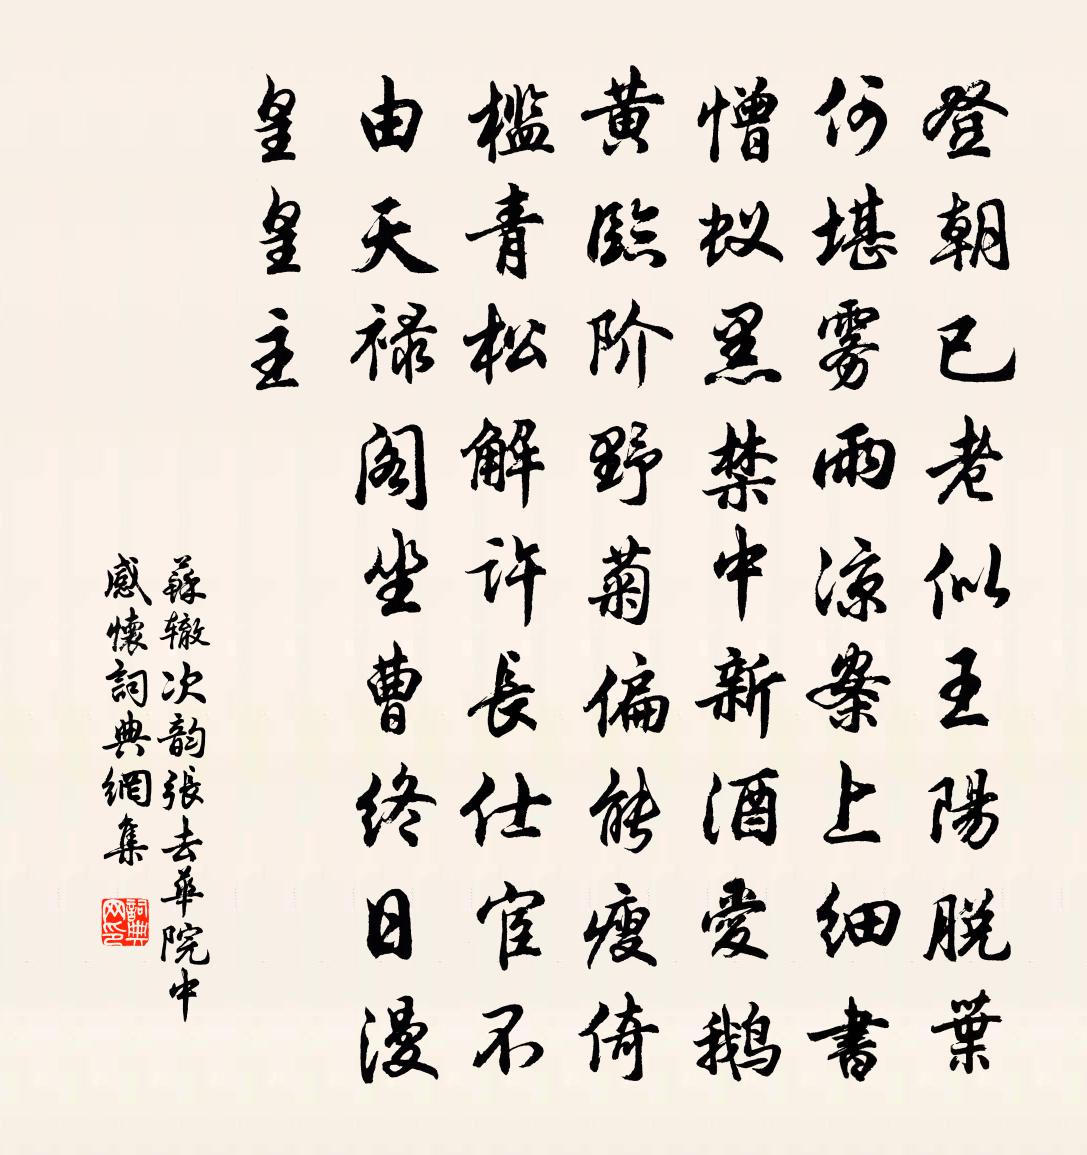 登朝已老似王陽脱葉
何堪雾雨涼案上细書
憎蚁黑禁中新酒愛鹅
黄臨阶野菊偏能瘦倚
槛青松解许長仕宦不
由天禄阁坐曹终日漫
皇皇主
蘇辙次韵張去華院中
感懷詞典網集
詞典网印